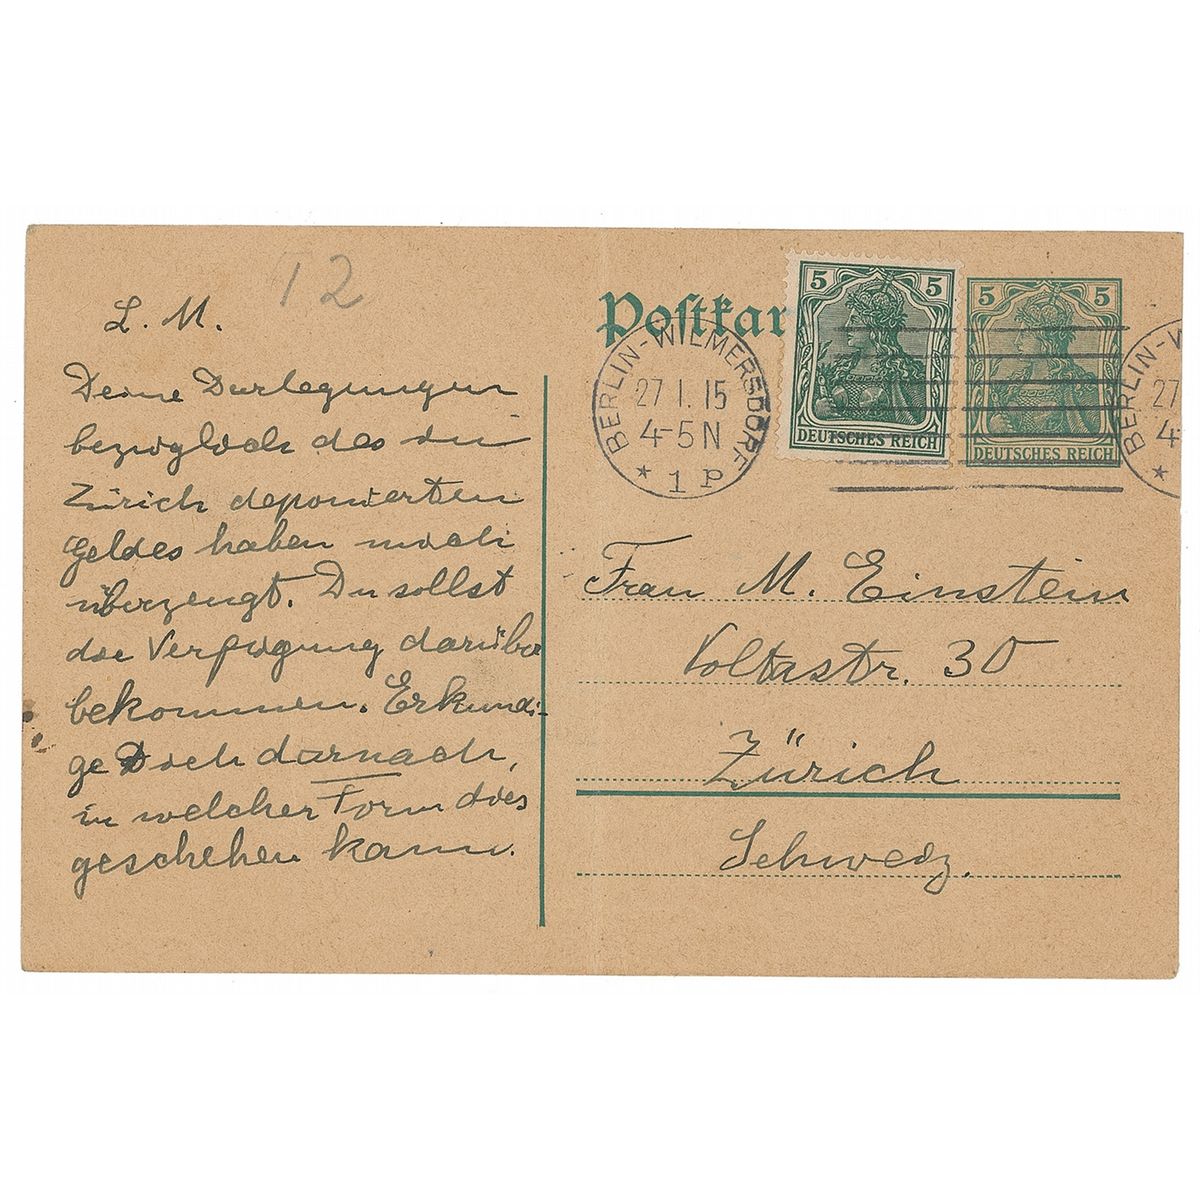 12
L. M.
Deine Darlegungen
bezüglich des in
Zürich deponierten
Geldes haben mich
überzeugt. Du sollst
die Verfügung darüber
bekommen. Erkundi-
ge Dich darnach,
in welcher Form dies
geschehen kann.
Postkar
5 5
DEUTSCHES REICH
5 5
DEUTSCHES REICH
BERLIN-WILMERSDORF
27.1.15
4-5N
* 1 P
BERLIN-W
27
4-
*
Frau M. Einstein
Voltastr. 30
Zürich
Schweiz.